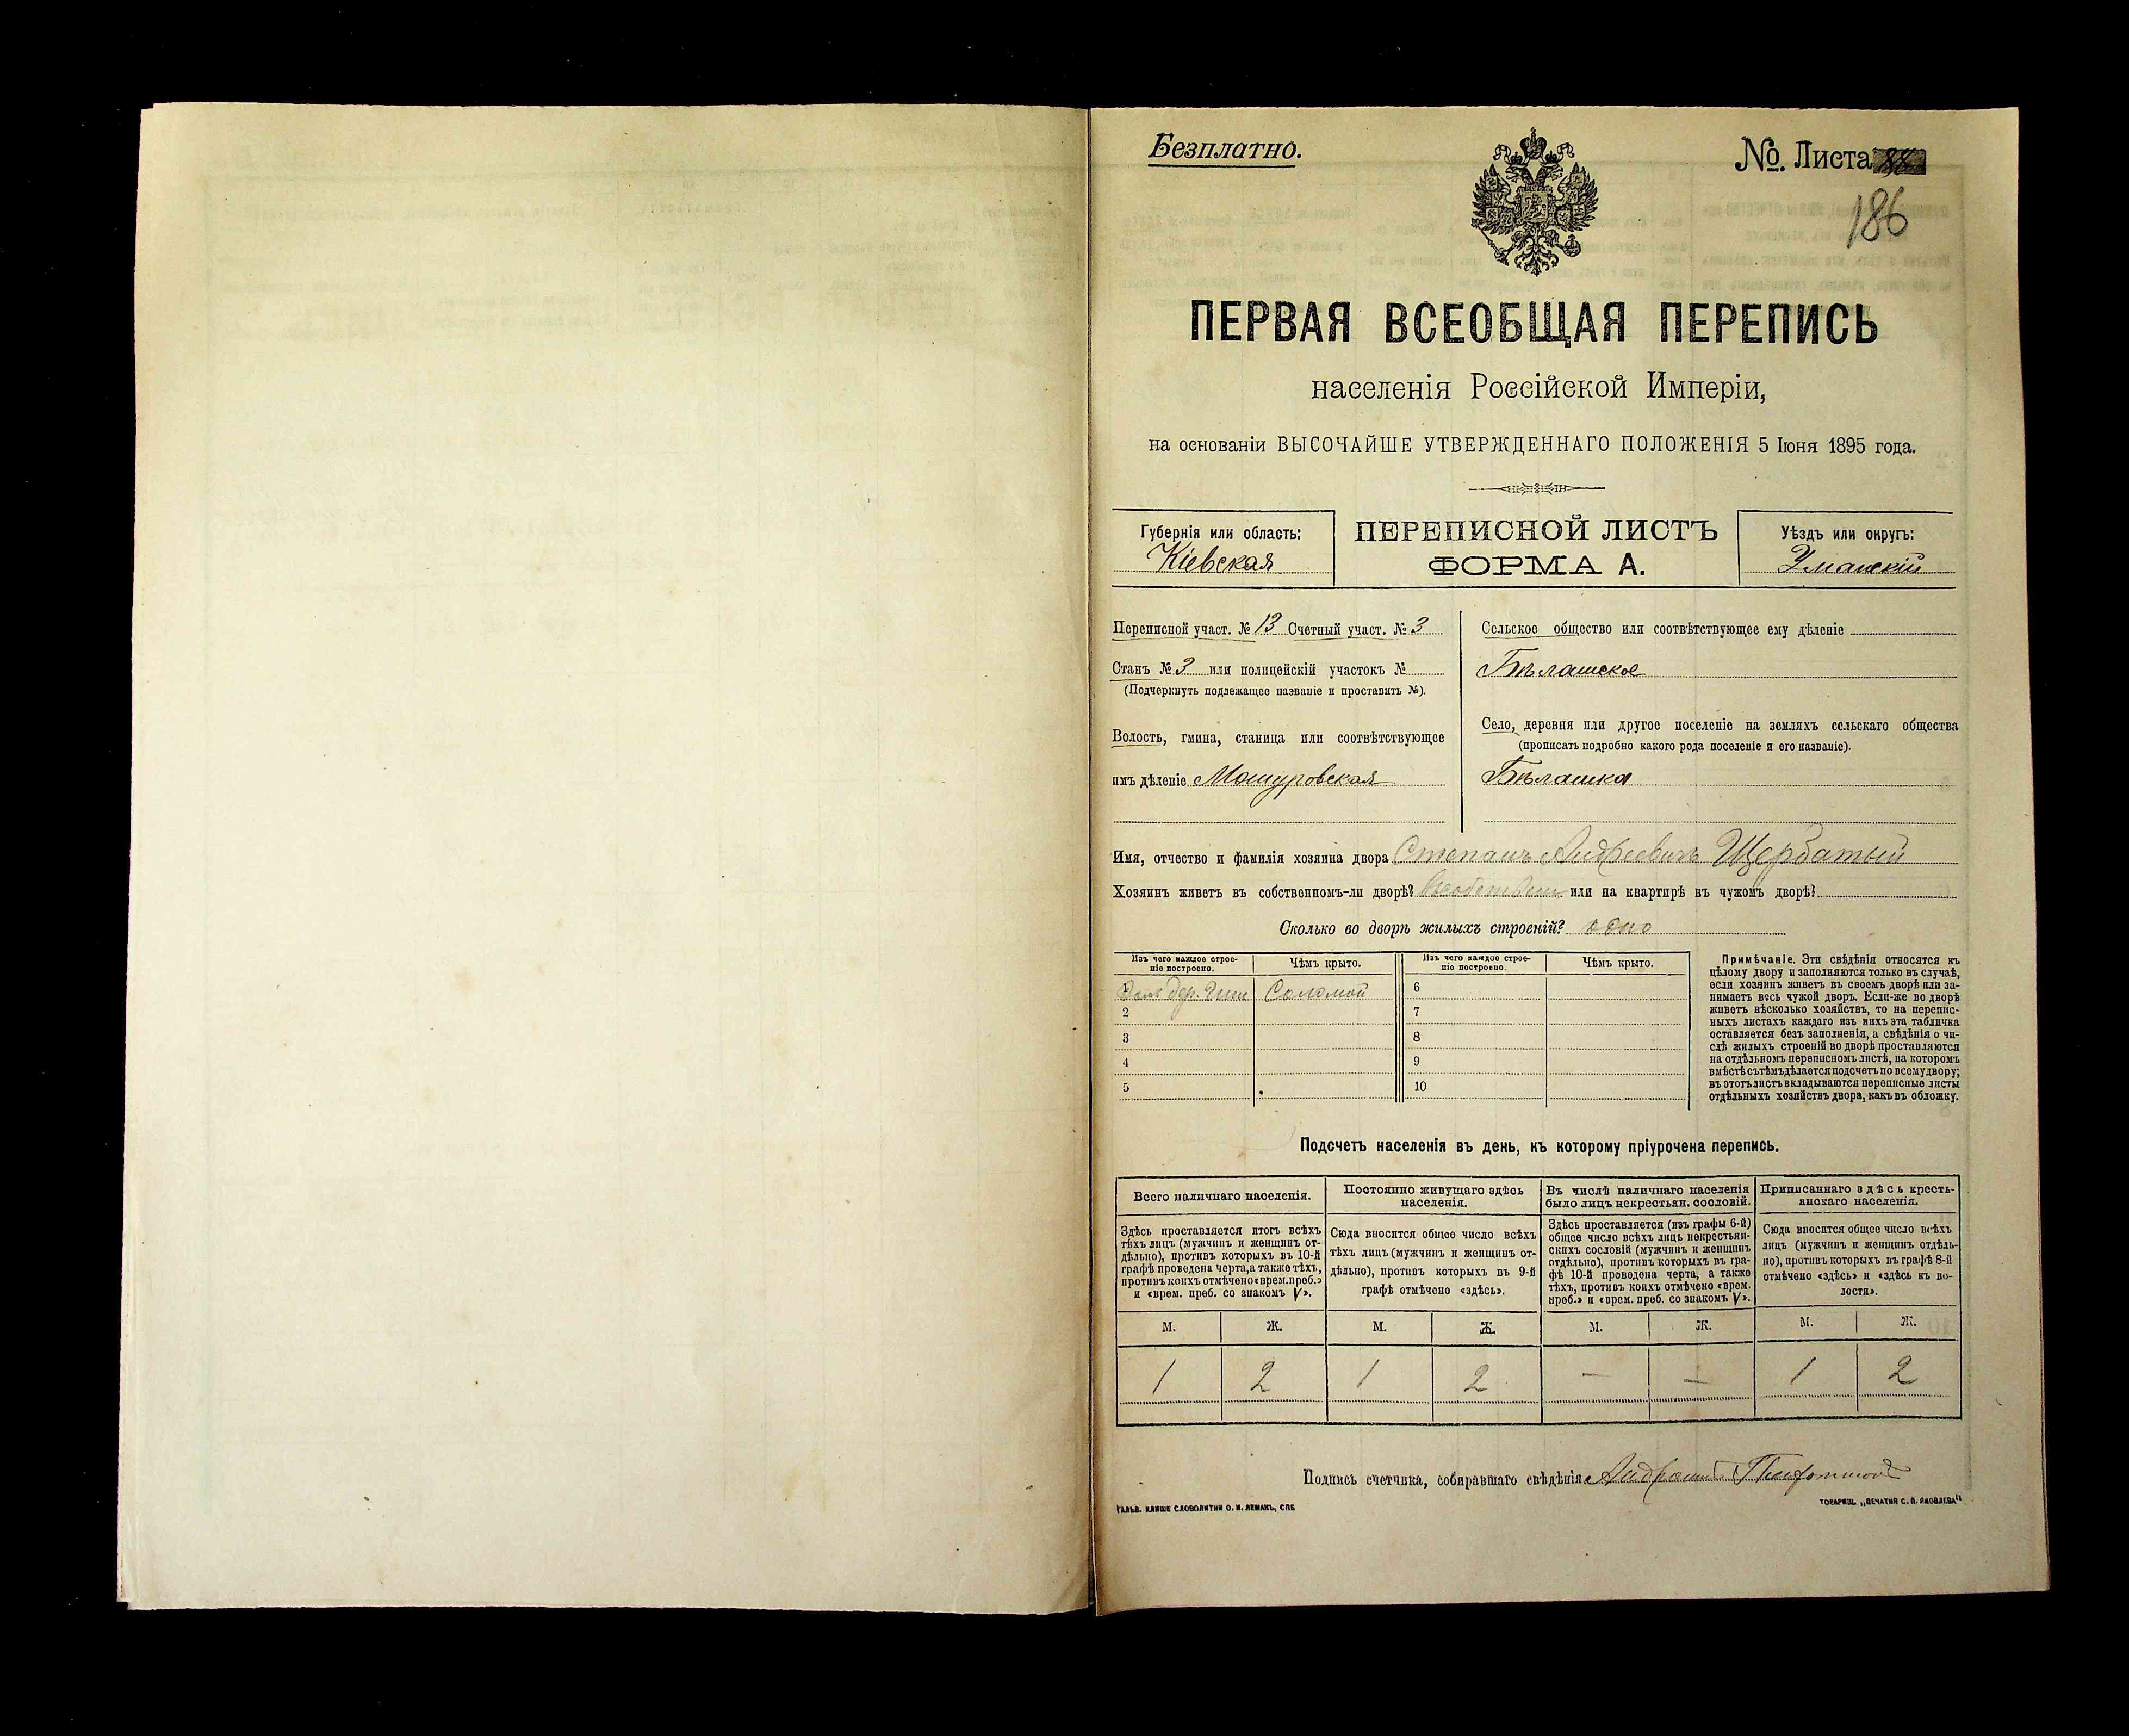 Безплатно.
№. Листа
186
ПЕРВАЯ ВСЕОБЩАЯ ПЕРЕПИСЬ
населенія Россійской Имперіи,
на основаніи ВЫСОЧАЙШЕ УТВЕРЖДЕННАГО ПОЛОЖЕНІЯ 5 Іюня 1895 года.
Губернія или область:
Кіевская
ПЕРЕПИСНОЙ ЛИСТЪ
ФОРМА А.
Уѣздъ или округъ:
Уманскій
Переписной участ. № 13 Счетный участ. № 3
Станъ № 3 или полицейскій участокъ №
(Подчеркнуть подлежащее названіе и проставить №).
Волость, гмина, станица или соотвѣтствующее
имъ дѣленіе Машуровская
Сельское общество или соотвѣтствующее ему дѣленіе
Бѣлашское
Село, деревня или другое поселеніе на земляхъ сельскаго общества
(прописать подробно какого рода поселеніе и его названіе).
Бѣлашка
Имя, отчество и фамилія хозяина двора Степанъ Андреевичъ Щербатый
Хозяинъ живетъ въ собственномъ-ли дворѣ? или на квартирѣ въ чужомъ дворѣ?
Сколько во дворѣ жилыхъ строеній? одно
Изъ чего каждое строе-
ніе построено.
Чѣмъ крыто.
Изъ чего каждое строе-
ніе построено.
Чѣмъ крыто.
1 Соломой
2
3
4
5
6
7
8
9
10
Примѣчаніе. Эти свѣдѣнія относятся къ
цѣлому двору и заполняются только въ случаѣ,
если хозяинъ живетъ въ своемъ дворѣ или за-
нимаетъ весь чужой дворъ. Если-же во дворѣ
живетъ нѣсколько хозяйствъ, то на перепис-
ныхъ листахъ каждаго изъ нихъ эта табличка
оставляется безъ заполненія, а свѣдѣнія о чи-
слѣ жилыхъ строеній во дворѣ проставляются
на отдѣльномъ переписномъ листѣ, на которомъ
вмѣстѣ съ тѣмъ дѣлается подсчетъ по всему двору;
въ этотъ листъ вкладываются переписные листы
отдѣльныхъ хозяйствъ двора, какъ въ обложку.
Подсчетъ населенія въ день, къ которому пріурочена перепись.
Всего наличнаго населенія.
Здѣсь проставляется итогъ всѣхъ
тѣхъ лицъ (мужчинъ и женщинъ от-
дѣльно), противъ которыхъ въ 10-й
графѣ проведена черта, а также тѣхъ,
противъ коихъ отмѣчено «врем. преб.»
и «врем. преб. со знакомъ V».
Постоянно живущаго здѣсь
населенія.
Сюда вносится общее число всѣхъ
тѣхъ лицъ (мужчинъ и женщинъ от-
дѣльно), противъ которыхъ въ 9-й
графѣ отмѣчено «здѣсь».
Въ числѣ наличнаго населенія
было лицъ некрестьян. сословій.
Здѣсь проставляется (изъ графы 6-й)
общее число всѣхъ лицъ некрестьян-
скихъ сословій (мужчинъ и женщинъ
отдѣльно), противъ которыхъ въ гра-
фѣ 10-й проведена черта, а также
тѣхъ, противъ коихъ отмѣчено «врем.
преб.» и «врем. преб. со знакомъ V».
Приписаннаго здѣсь кресть-
янскаго населенія.
Сюда вносится общее число всѣхъ
лицъ (мужчинъ и женщинъ отдѣль-
но), противъ которыхъ въ графѣ 8-й
отмѣчено «здѣсь» и «здѣсь къ во-
лости».
М. Ж. М. Ж. М. Ж. М. Ж.
1 2 1 2 — — 1 2
Подпись счетчика, собиравшаго свѣдѣнія
ГАЛЬВ. КЛИШЕ СЛОВОЛИТНИ О. И. ЛЕМАНЪ, СПБ
ТОВАРИЩ. „ПЕЧАТНЯ С. П. ЯКОВЛЕВА"